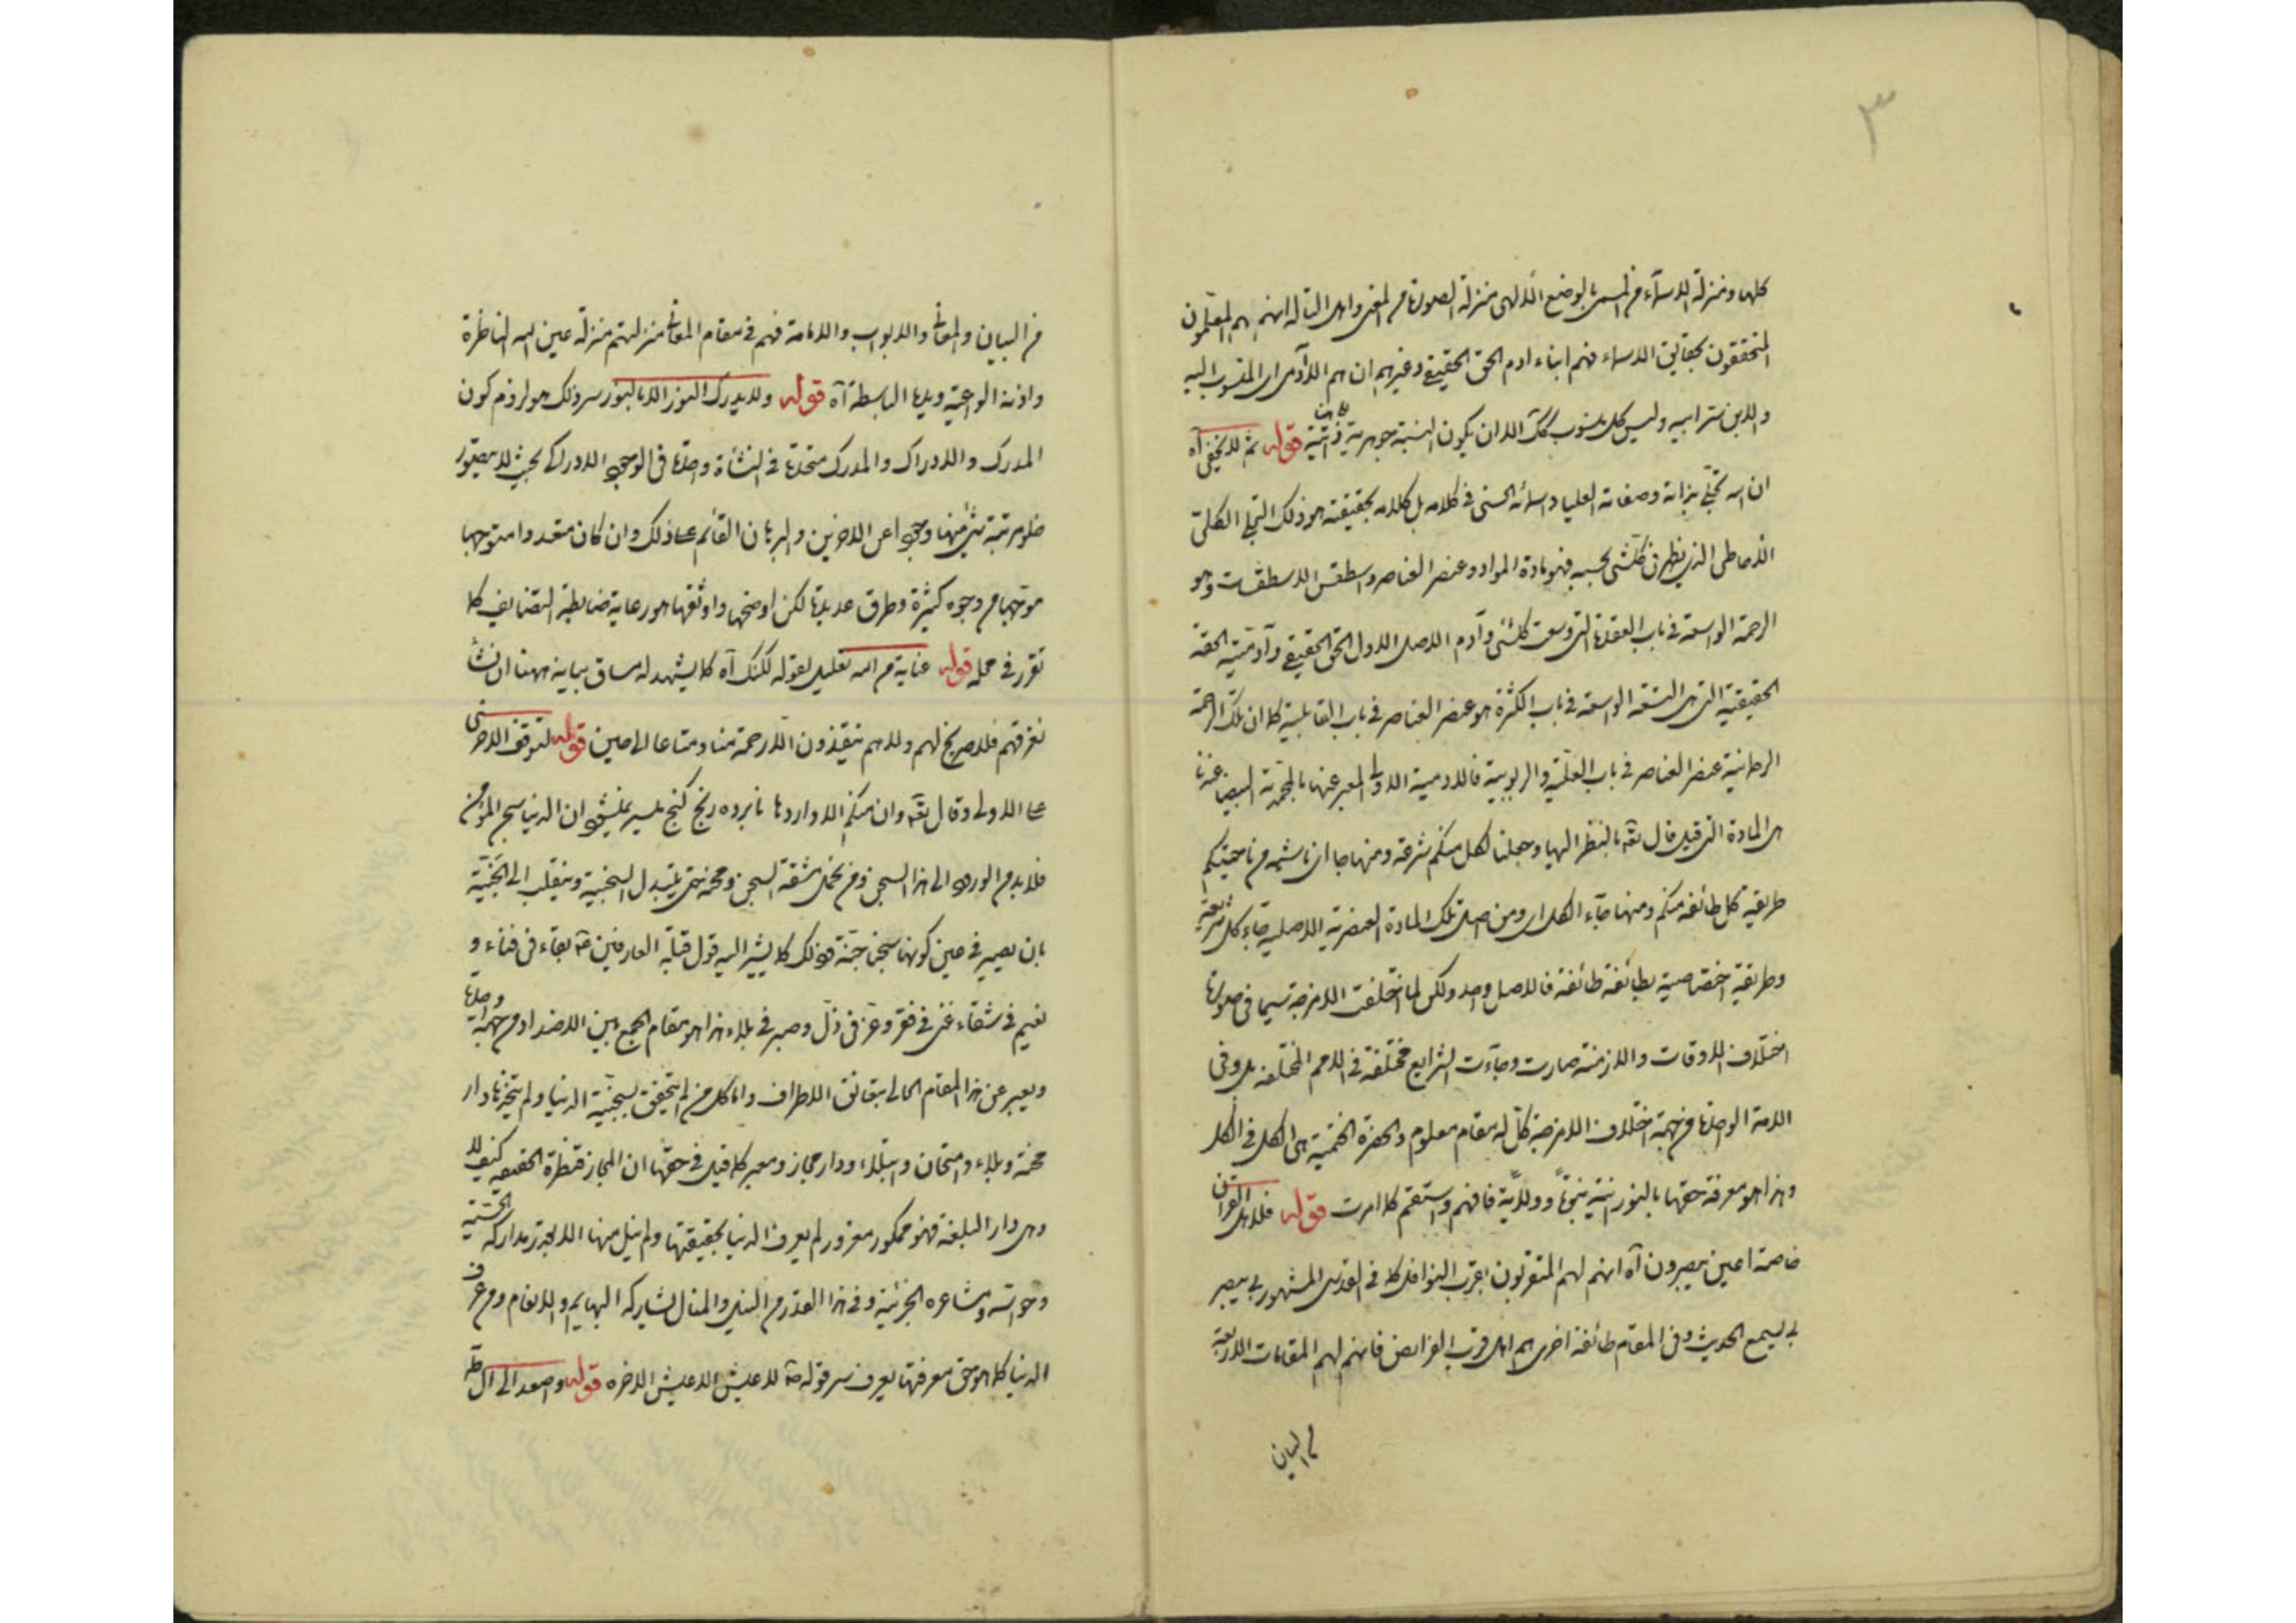 ٣
كلها ومنزلة الاسماء من المسمى بالوضع الالهى منزلة الصورة من المعنى واهل التأله انهم هم المتعلمون
المتحققون بحقايق الاسماء فهم ابناء ادم الحق الحقيقي وغيرهم ان هم الا آدمى اى المنسوب اليه
والابن سر ابيه وليس كل منسوب كك الا ان يكون النسبة جوهرية ذاتية قوله ثم لا يخفى آه
ان الله تجلى بذاته وصفاته العليا واسمائه الحسنى فى كلامه بل كلامه بحقيقته هو ذلك التجلى الكلى
الاحاطى الذى يظهر فى كل شئ بحسبه فهو مادة المواد وعنصر العناصر واسطقس الاسطقسات وهو
الرحمة الواسعة فى باب التى وسعت كل شئ وآدم الاصل الاول الحق الحقيقي وآدميته الحقة
الحقيقية التى هى الواسعة فى باب الكثرة هو عنصر العناصر فى باب القابلية كما ان تلك الرحمة
الرحمانية عنصر العناصر فى باب العلية والربوبية فالادمية الاولى المعبر عنها بالمحمدية البيضاء عندنا
هى المادة التى قيل قال تعه بالنظر اليها وجعلنا لكل منكم شرعة ومنهاجا اى ناشئه من ناحيتكم
طريقية كل طائفه منكم ومنها جاء الكل اى ومن اصل تلك المادة العنصرية الاصلية جاء كل شريعة
وطريقية اختصاصية بطائفة طائفة فالاصل واحد ولكن لما اختلفت الامزجة سيما فى صورة
اختلاف الاوقات والازمنة صارت وجاءت الشرايع مختلفة فى الامم المختلفه بل وفى
الامة الواحدة من جهة اختلاف الامزجة كل له مقام معلوم والحضرة الختمية هى الكل فى الكل
وهذا هو معرفة حقها بالنورانية نبوةً وولايةً فافهم واستقم كما امرت قوله فلاهل القرآن
خاصة اعين يبصرون آه انهم لهم المتقربون بقرب النوافل كما فى القدسى المشهور بى يبصر
بى يسمع الحديث وفى المقام طائفة اخرى هم اهل قرب الفرائض فانهم لهم المقامات الاربعة
من البيان
من البيان والمعانى والابواب والامامة فهم فى مقام المعانى منزلتهم منزلة عين الله الناظرة
واذنه الواعية ويده الباسطة آه قوله ولا يدرك النور الا بالنور سر ذلك هو لزوم كون
المدرك والادراك والمدرك متحدة فى النشأة واحدة فى الوجود الادراكى بحيث لا يتصور
خلو مرتبة شئ منها وجودا عن الاخرين والبرهان القائم على ذلك وان كان متعددا متوجها
موجها من وجوه كثيرة وطرق عديدة لكن اوضحها واوثقها هو رعاية ضابطة التضايف كما
تقرر فى محله قوله عناية من الله تعليل لقوله لكنك آه كما يشهد له مساق بيانه ههنا ان نشأ
نغرقهم فلا صريخ لهم ولا هم ينقذون الا رحمة منا ومتاعا الى حين قوله لتوقف الاخرى
على الاولى وقال تعه وان منكم الا واردها نابرده رنج گنج ميسر نميشود ان الدنيا سجن المؤمن
فلا بد من الورود الى هذا السجن ومن تحمل مشقة السجن ومحنه حتى يتبدل السجنية وينقلب الى الجنية
بان يصير فى عين كونها سجنا جنة وذلك كما يشير اليه قول قبلة العارفين عه بقاء فى فناء و
نعيم فى شقاء غنى فى فقر وعز فى ذل وصبر فى بلاء هذا هو مقام الجمع بين الاضداد من جهة واحدة
ويعبر عن هذا المقام الحالى بتعانق الاطراف واما كل من لم يتحقق بسجنية الدنيا ولم يتخذها دار
محنة وبلاء وامتحان وابتلاء ودار مجاز ومعبر كما قيل فى حقها ان المجاز قنطرة الحقيقه كيف لا
وهى دار البلغة فهو ممكور مغرور لم يعرف الدنيا بحقيقتها ولم ينل منها الا بقدر مداركه الحسية
وحواسه ومشاعره الجزئية وفى هذا القدر من النيل والمنال تشاركه البهايم والانعام ومن عرف
الدنيا كما هو حق معرفتها يعرف سر قوله صه لا عيش الا عيش الاخره قوله واصعد الى